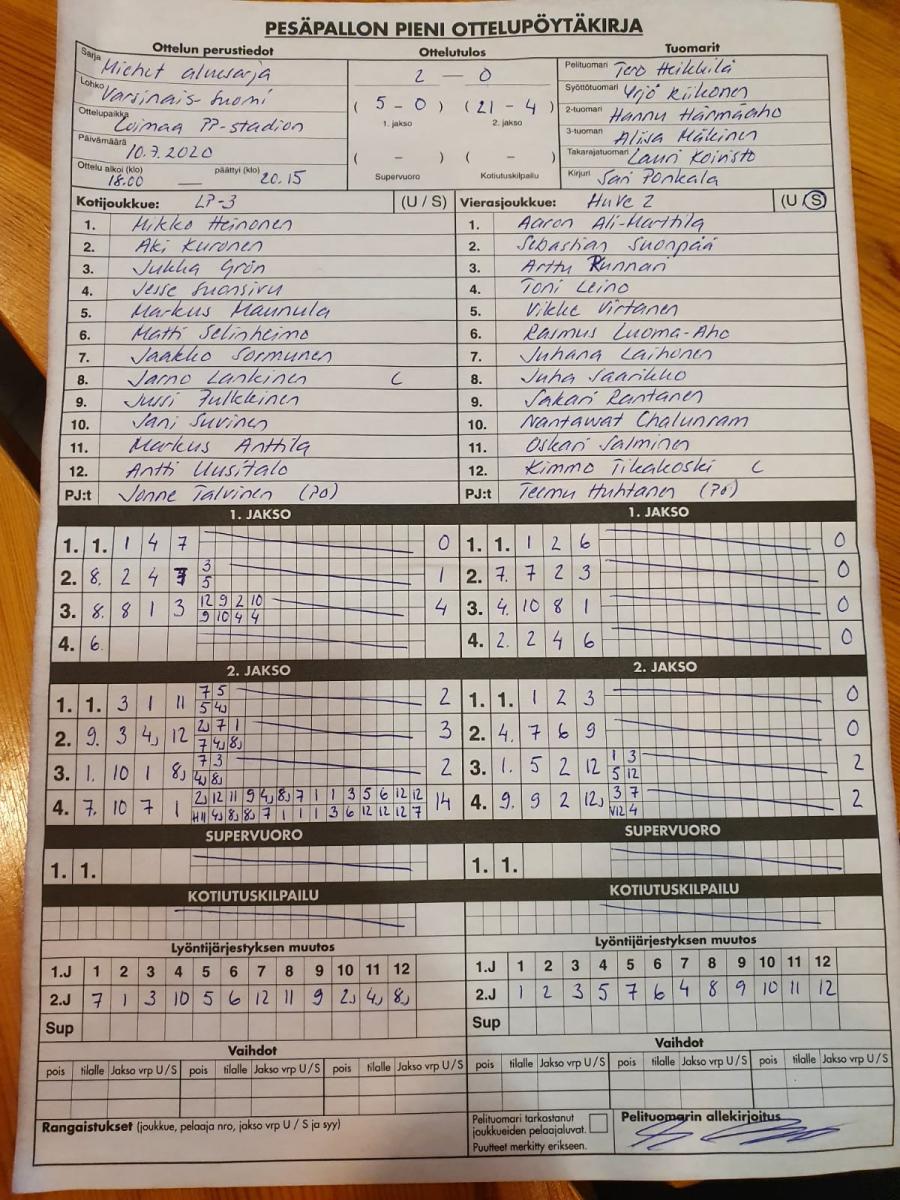 PESÄPALLON PIENI OTTELUPÖYTÄKIRJA
Ottelun perustiedot
Sarja Miehet aluesarja
Lohko Varsinais-Suomi
Ottelupaikka Loimaa PP-stadion
Päivämäärä 10.7.2020
Ottelu alkoi (klo) 18.00 — päättyi (klo) 20.15
Ottelutulos
2 — 0
( 5 - 0 ) ( 21 - 4 )
1. jakso 2. jakso
( - ) ( - )
Supervuoro Kotiutuskilpailu
Tuomarit
Pelituomari Tero Heikkilä
Syöttötuomari Yrjö Riikonen
2-tuomari Hannu Härmäaho
3-tuomari Aliisa Mäkinen
Takarajatuomari Lauri Koivisto
Kirjuri Sari Ponkala
Kotijoukkue: LP-3 (U / S)
1. Mikko Heinonen
2. Aki Kuronen
3. Jukka Grön
4. Jesse Suonsivu
5. Markus Maunula
6. Matti Selinheimo
7. Jaakko Sormunen
8. Jarno Lankinen C
9. Jussi Pulkkinen
10. Jani Suvinen
11. Markus Anttila
12. Antti Uusitalo
PJ:t Jonne Talvinen (PJ)
Vierasjoukkue: HuVe 2 (U / S)
1. Aaron Ali-Marttila
2. Sebastian Suonpää
3. Arttu Runnari
4. Toni Leino
5. Vikke Virtanen
6. Rasmus Luoma-Aho
7. Juhana Laihonen
8. Juha Saarikko
9. Sakari Rantanen
10. Nantawat Chalunram
11. Oskari Salminen
12. Kimmo Tikakoski C
PJ:t Teemu Huhtanen (PJ)
1. JAKSO
1. 1. 1 4 7 0
2. 8. 2 4 7 3 1
5
3. 8. 8 1 3 12 9 2 10 4
9 10 4 4
4. 6.
1. JAKSO
1. 1. 1 2 6 0
2. 7. 7 2 3 0
3. 4. 10 8 1 0
4. 2. 2 4 6 0
2. JAKSO
1. 1. 3 1 11 7 5 2
5 4J
2. 9. 3 4J 12 2J 7 1 3
7 4J 8J
3. 1. 10 1 8J 7 3 2
4J 8J
4. 7. 10 7 1 2J 12 11 9 4J 8J 7 1 1 3 5 6 12 12 14
H11 4J 8J 8J 7 1 1 1 3 6 12 12 12 7
2. JAKSO
1. 1. 1 2 3 0
2. 4. 7 6 9 0
3. 1. 5 2 12 1 3 2
5 12
4. 9. 9 2 12J 3 7 2
V12 4
SUPERVUORO
1. 1.
SUPERVUORO
1. 1.
KOTIUTUSKILPAILU
KOTIUTUSKILPAILU
Lyöntijärjestyksen muutos
1.J 1 2 3 4 5 6 7 8 9 10 11 12
2.J 7 1 3 10 5 6 12 11 9 2J 4J 8J
Sup
Lyöntijärjestyksen muutos
1.J 1 2 3 4 5 6 7 8 9 10 11 12
2.J 1 2 3 5 7 6 4 8 9 10 11 12
Sup
Vaihdot
pois tilalle Jakso vrp U/S pois tilalle Jakso vrp U/S pois tilalle Jakso vrp U/S
Vaihdot
pois tilalle Jakso vrp U/S pois tilalle Jakso vrp U/S pois tilalle Jakso vrp U/S
Rangaistukset (joukkue, pelaaja nro, jakso vrp U / S ja syy)
Pelituomari tarkastanut
joukkueiden pelaajaluvat.
Puutteet merkitty erikseen.
Pelituomarin allekirjoitus